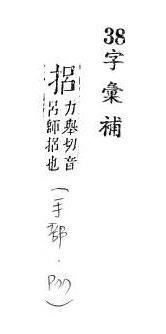 38字彙補
捛
力舉切音
呂師捛也
(手部．P77)